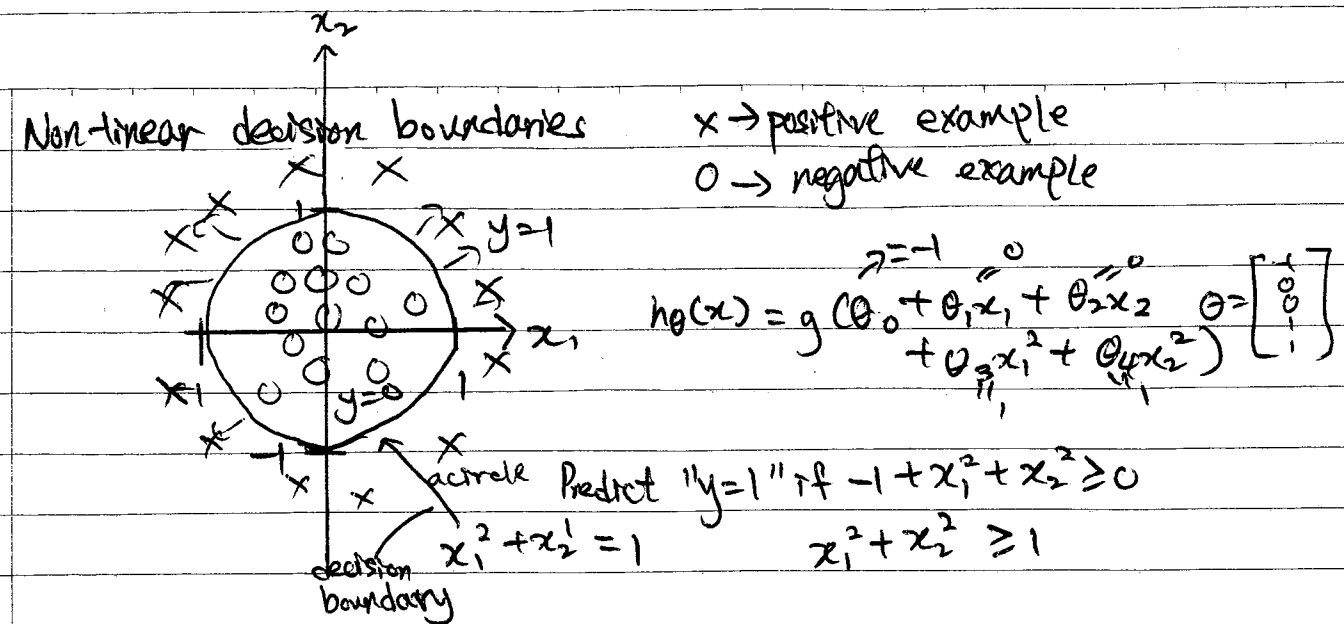 x₂
Non-linear decision boundaries
x → positive example
O → negative example
1
y=1
hθ(x) = g(θ₀ + θ₁x₁ + θ₂x₂
=-1
0
0
+ θ₃x₁² + θ₄x₂²)
1
1
θ = [-1 0 0 1 1]
x₁
-1
1
y=0
-1
a circle
Predict "y=1" if -1 + x₁² + x₂² ≥ 0
x₁² + x₂¹ = 1
x₁² + x₂² ≥ 1
decision
boundary